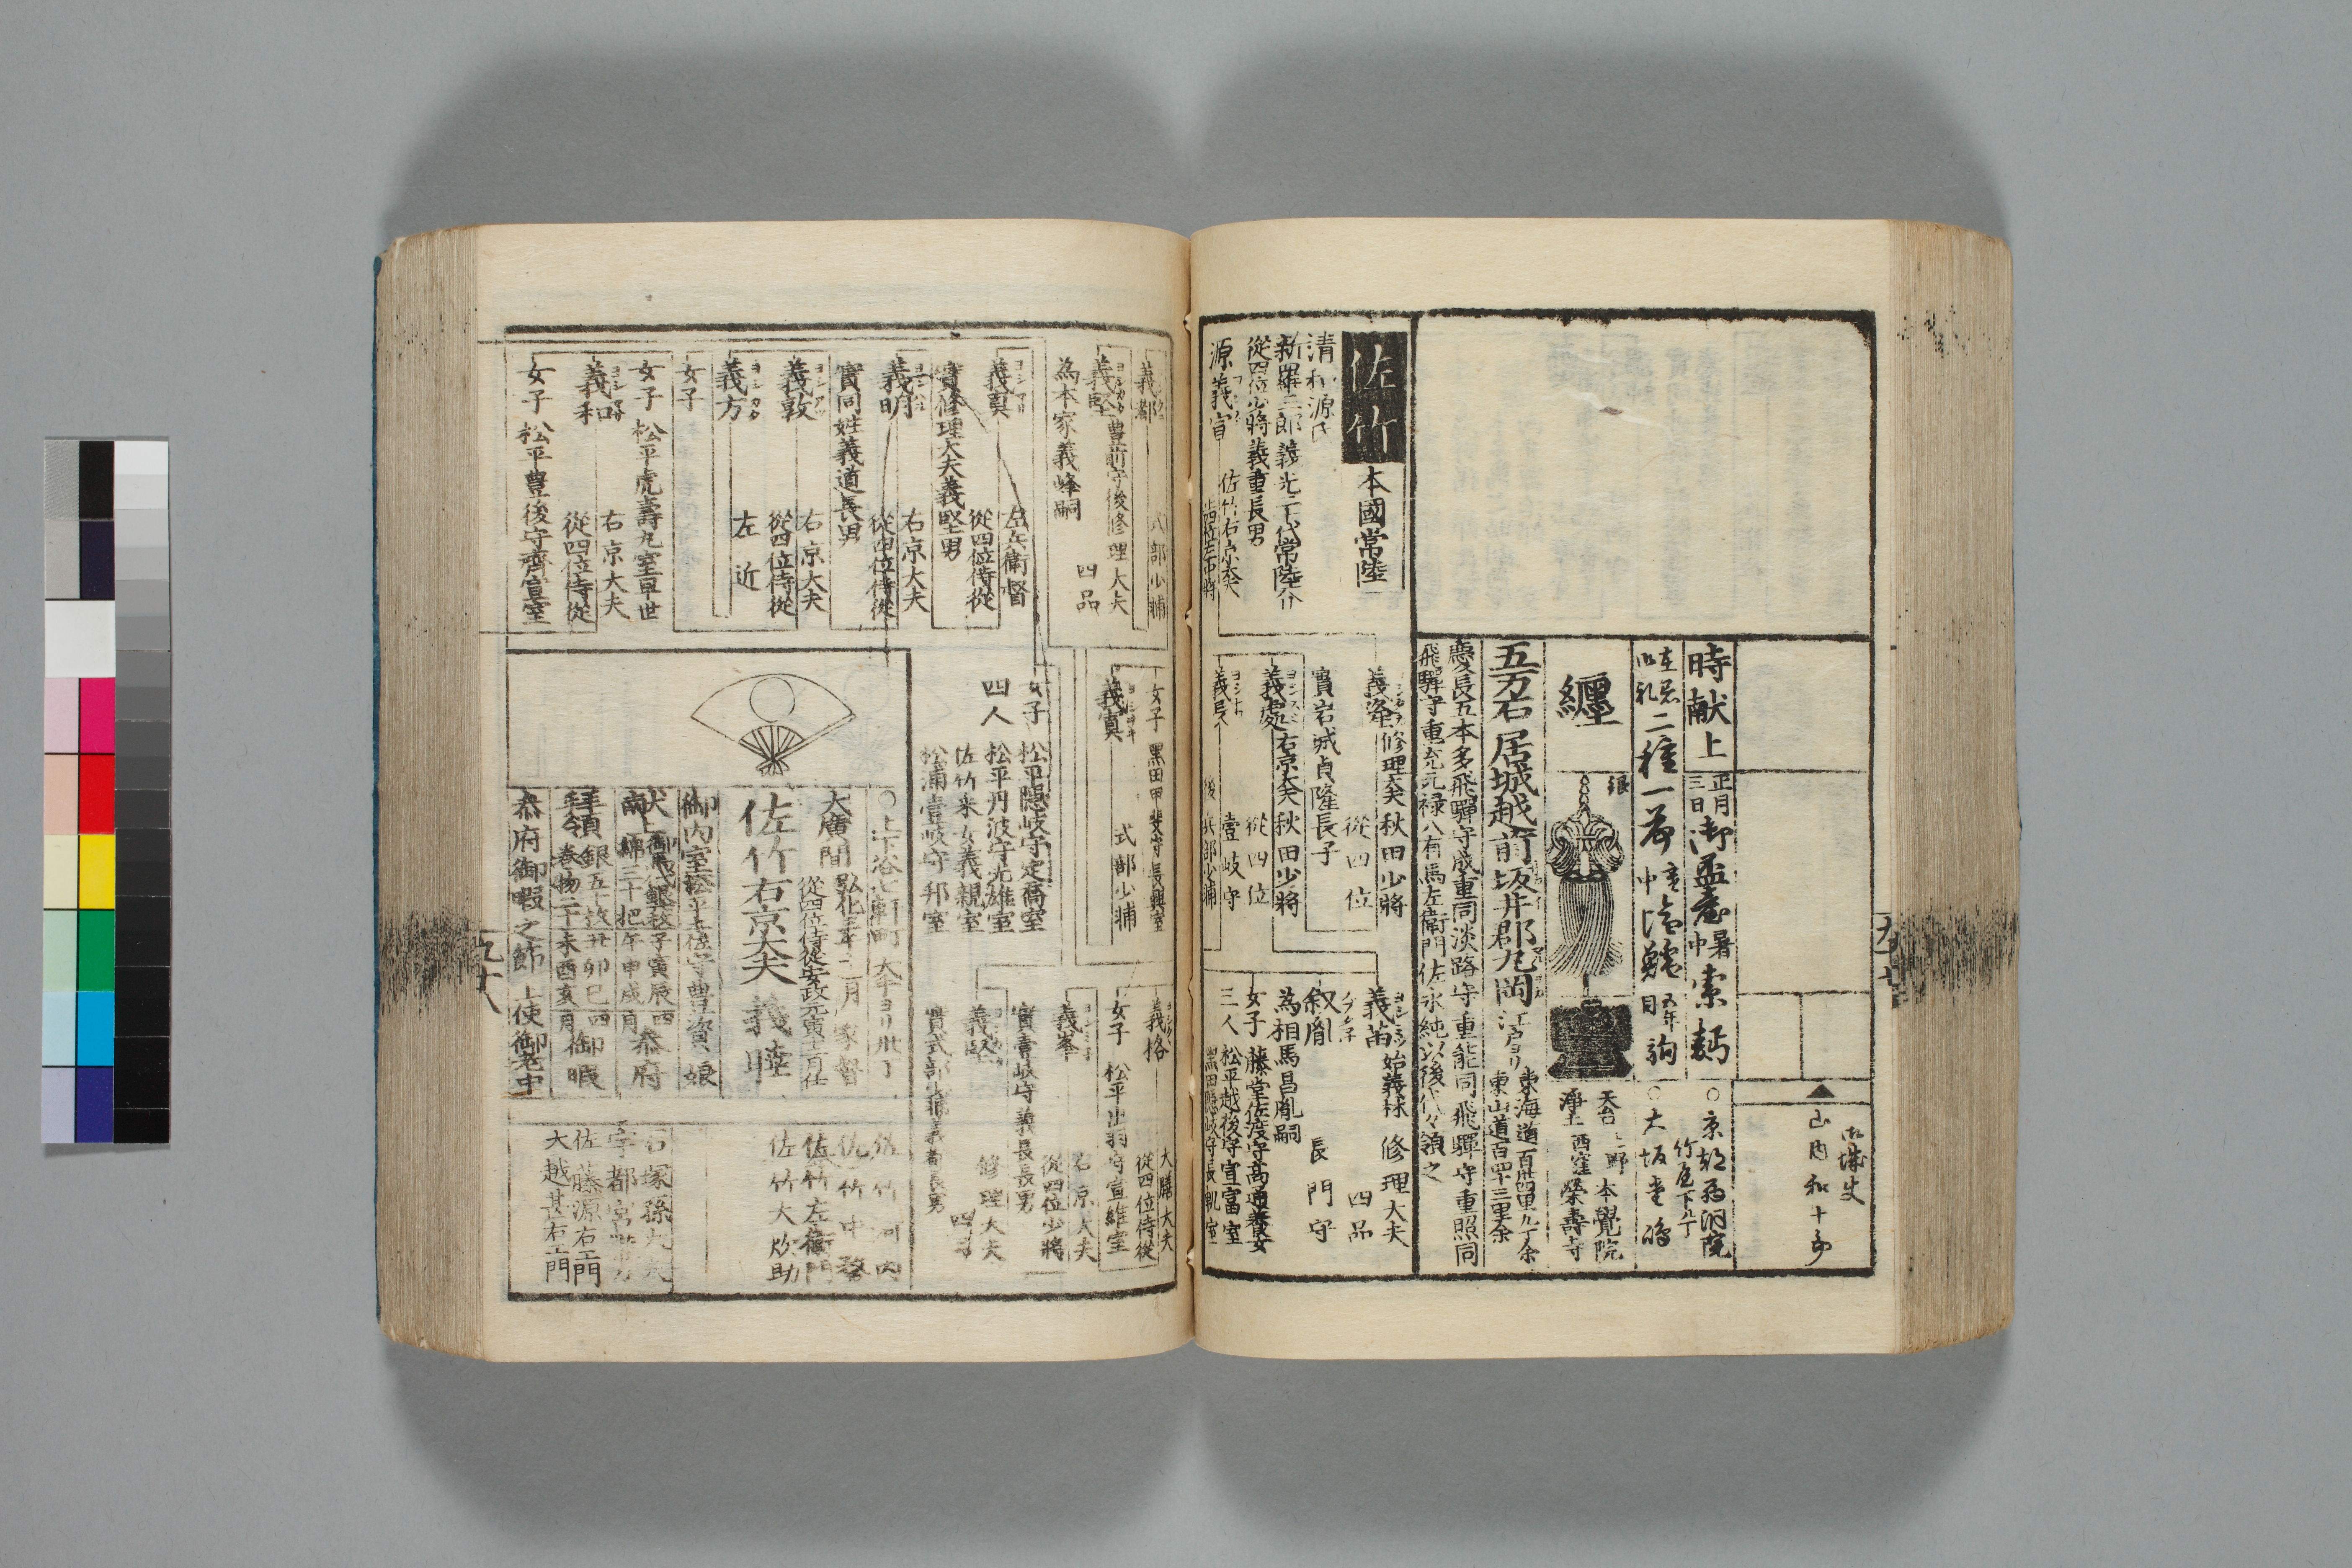 御城使
山内和十郎
時献上
正月三日
御盃臺
暑中
索麪
在着御礼
二種一荷
寒中
塩鱈
〇京都
竹屋下ル丁
〇大坂
纏
銀
天台
上野
本覺院
浄土
西窪
榮壽寺
五万石
居城越前坂井郡丸岡
江戸ヨリ
東海道百卅四里九丁余
東山道百四十三里余
慶長五本多飛騨守成重同淡路守重能同飛騨守重照同
飛騨守重益元禄八有馬左衛門佐永純以後代々領之
佐竹
本國常陸
清和源氏
新羅三郎義光二十代常陸介
從四位少將義重長男
源義宣
佐竹右京大夫
義隆
修理大夫秋田少將
從四位
實岩城貞隆長子
義處
右京大夫秋田少將
從四位
義長
壹岐守
後兵部少輔
義苗
始義林
修理大夫
四品
叙胤
長門守
為相馬昌胤嗣
女子
三人
藤堂佐渡守高通養女
松平越後守宣富室
黒田隠岐守長軌室
九十七
義都
式部少輔
義堅
豊前守後修理大夫
四品
為本家義峰嗣
女子
黒田甲斐守長興室
義寘
式部少輔
義格
大膳大夫
從四位侍從
女子
松平出羽守宣維室
義峯
右京大夫
從四位少將
實壹岐守義長長男
義堅
修理大夫
四品
實式部少輔義都長男
義眞
左兵衛督
從四位侍從
實修理大夫義堅男
義明
右京大夫
從四位侍從
實同姓義道長男
義敦
右京大夫
從四位侍從
義方
左近
女子
四人
松平隠岐守定喬室
松平丹波守光雄室
佐竹釆女義親室
松浦壹岐守邦室
女子
女子
松平虎壽丸室早世
義和
右京大夫
從四位侍從
女子
松平豊後守齊宣室
〇上下谷七軒町
大手ヨリ廿丁
大廣間
弘化三年二月家督
從四位侍從安政元寅十二月任
佐竹右京大夫義睦
御内室松平土佐守豊資娘
献上
御馬代銀三十枚
綿二十把
子寅辰
午申戌
四月参府
拜領
銀五十枚
巻物二十
丑卯巳
未酉亥
四月御暇
参府御暇之節上使御老中
佐竹河内
佐竹中務
佐竹左衛門
佐竹大炊助
石塚孫太夫
佐藤源右エ門
大越甚右エ門
九十八